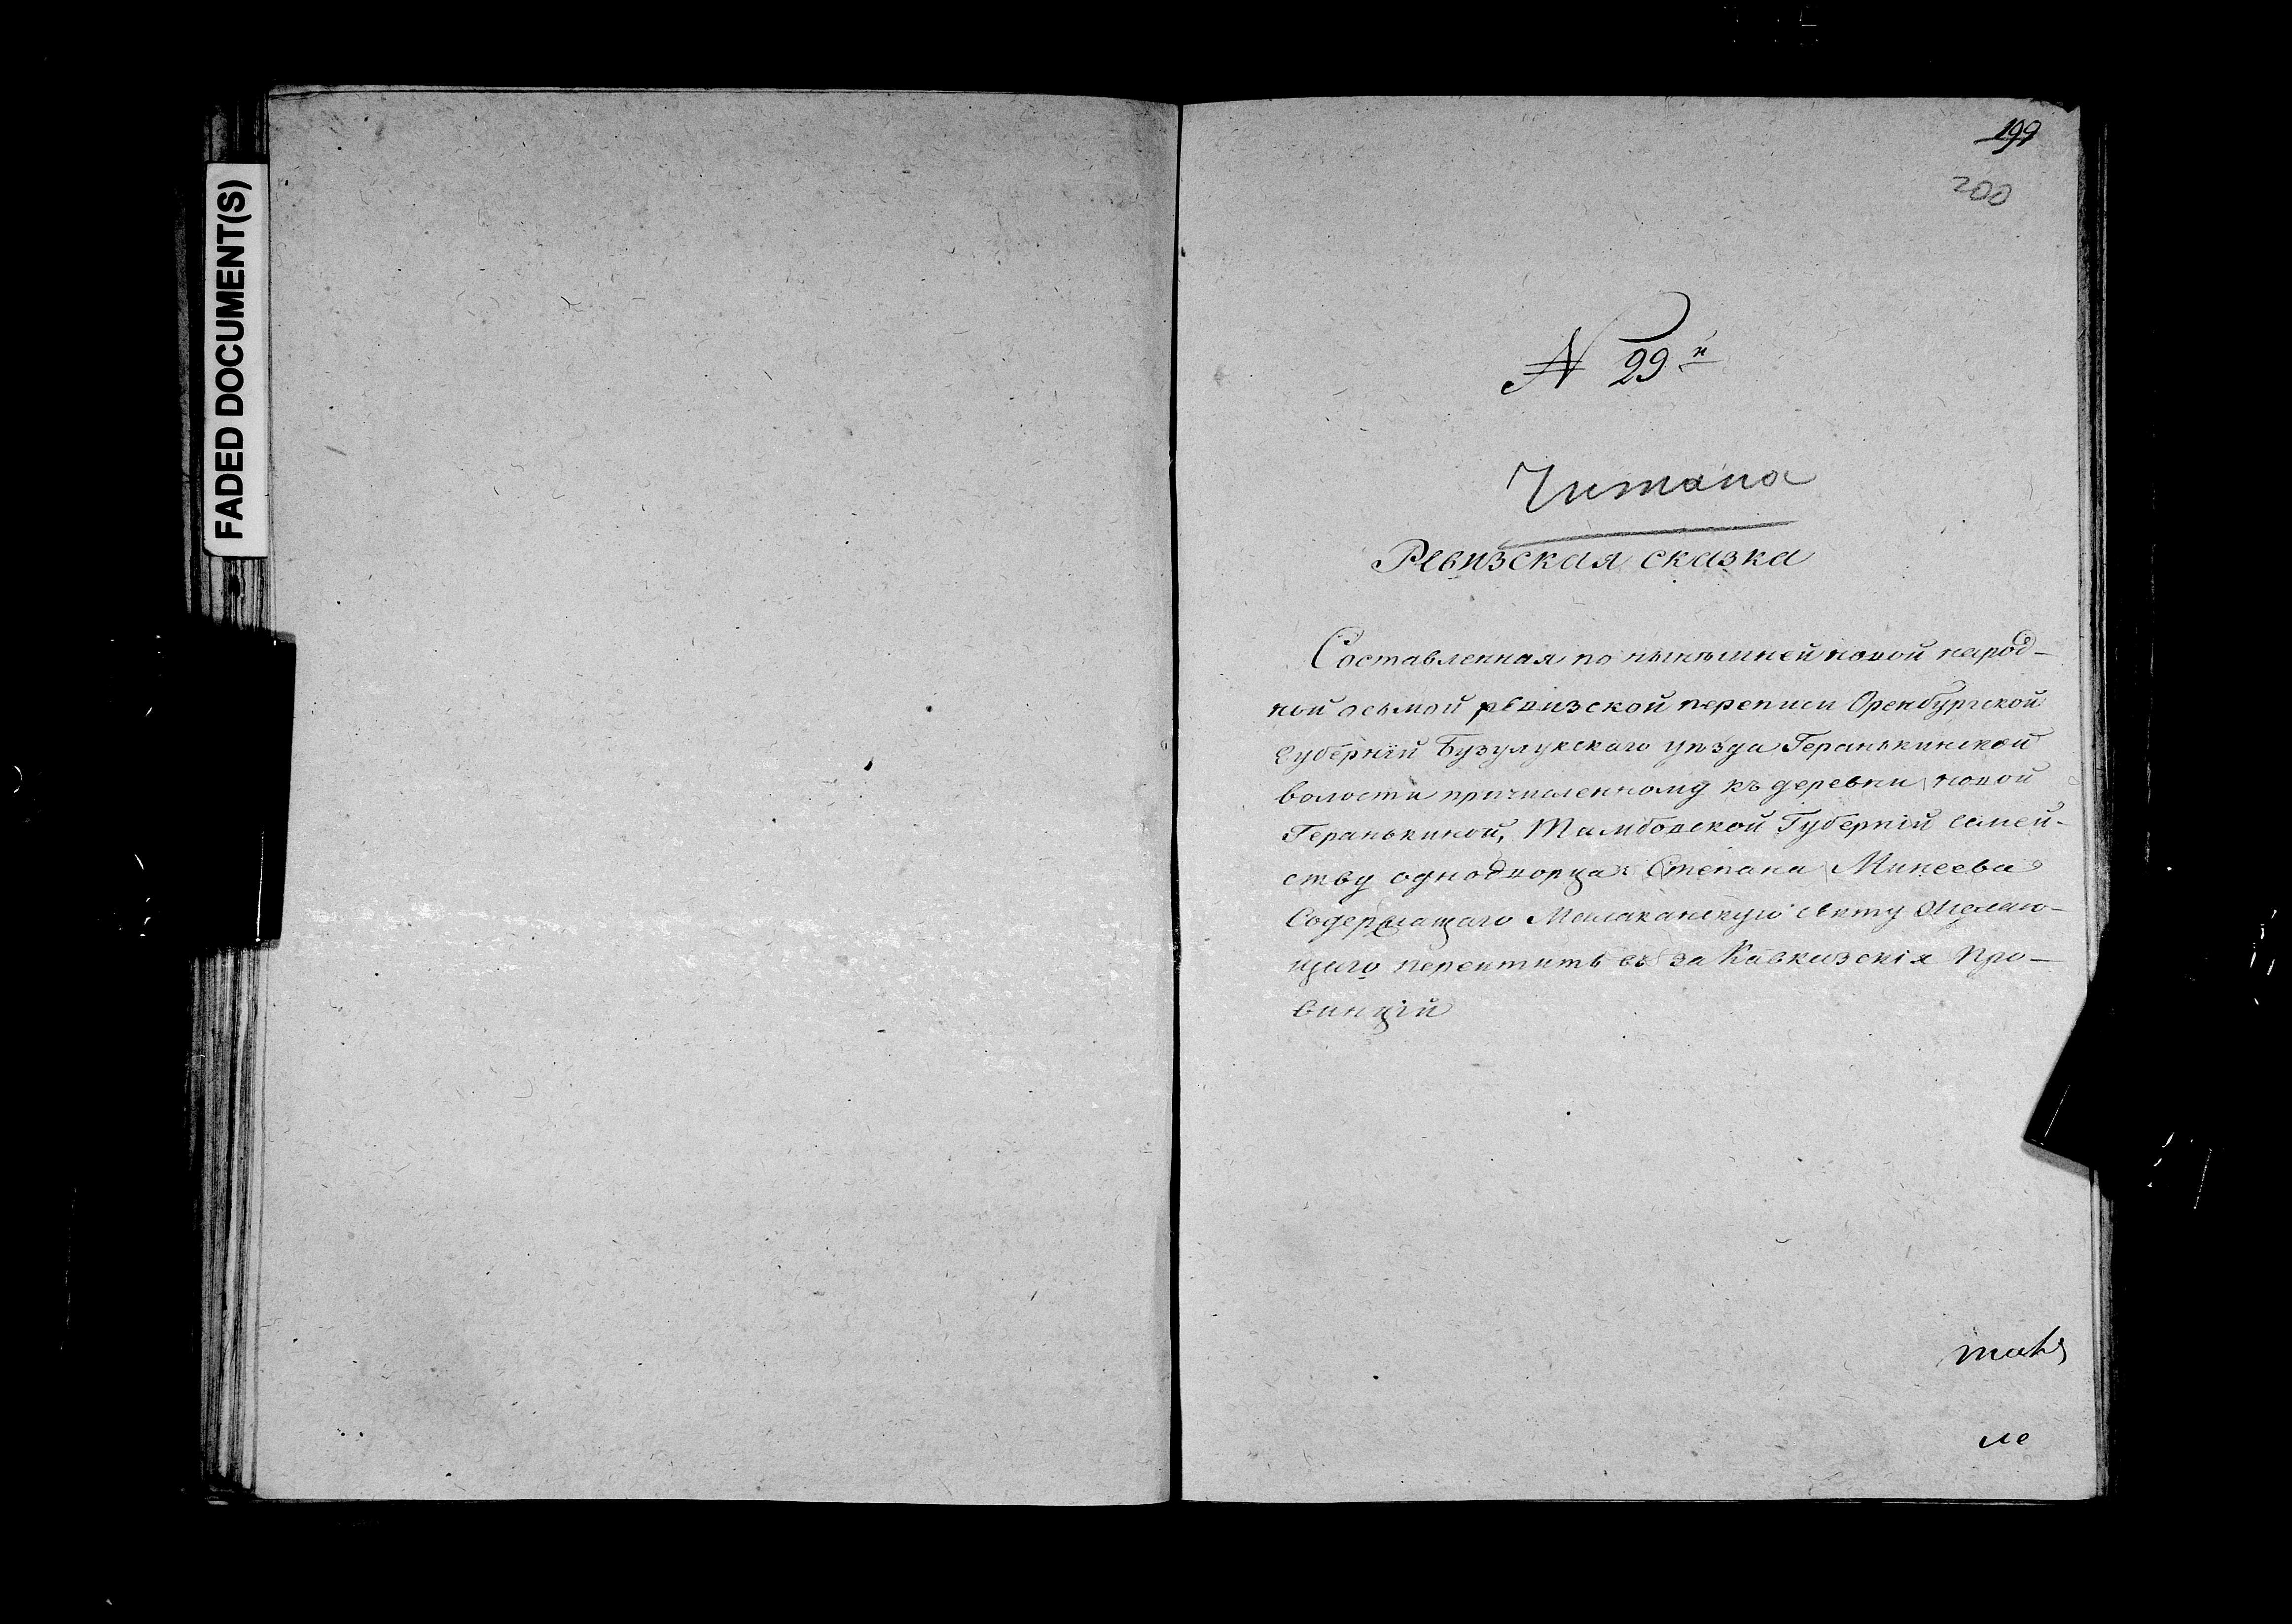 FADED DOCUMENT(S)
199
200
N 29й
Читана
Ревизская сказка
Составленная по нынѣшней новой народ-
ной осьмой ревизской переписи Оренбургской
Губерній Бузулукскаго уѣзда Геранькинской
волости причисленному къ деревни новой
Геранькиной, Тамбовской Губерній семей-
ству однодворца: Степана Минеева
Содержащаго Малаканскую секту Желаю-
щаго перейтить въ за Кавказскія Про-
винцій
такъ
ле